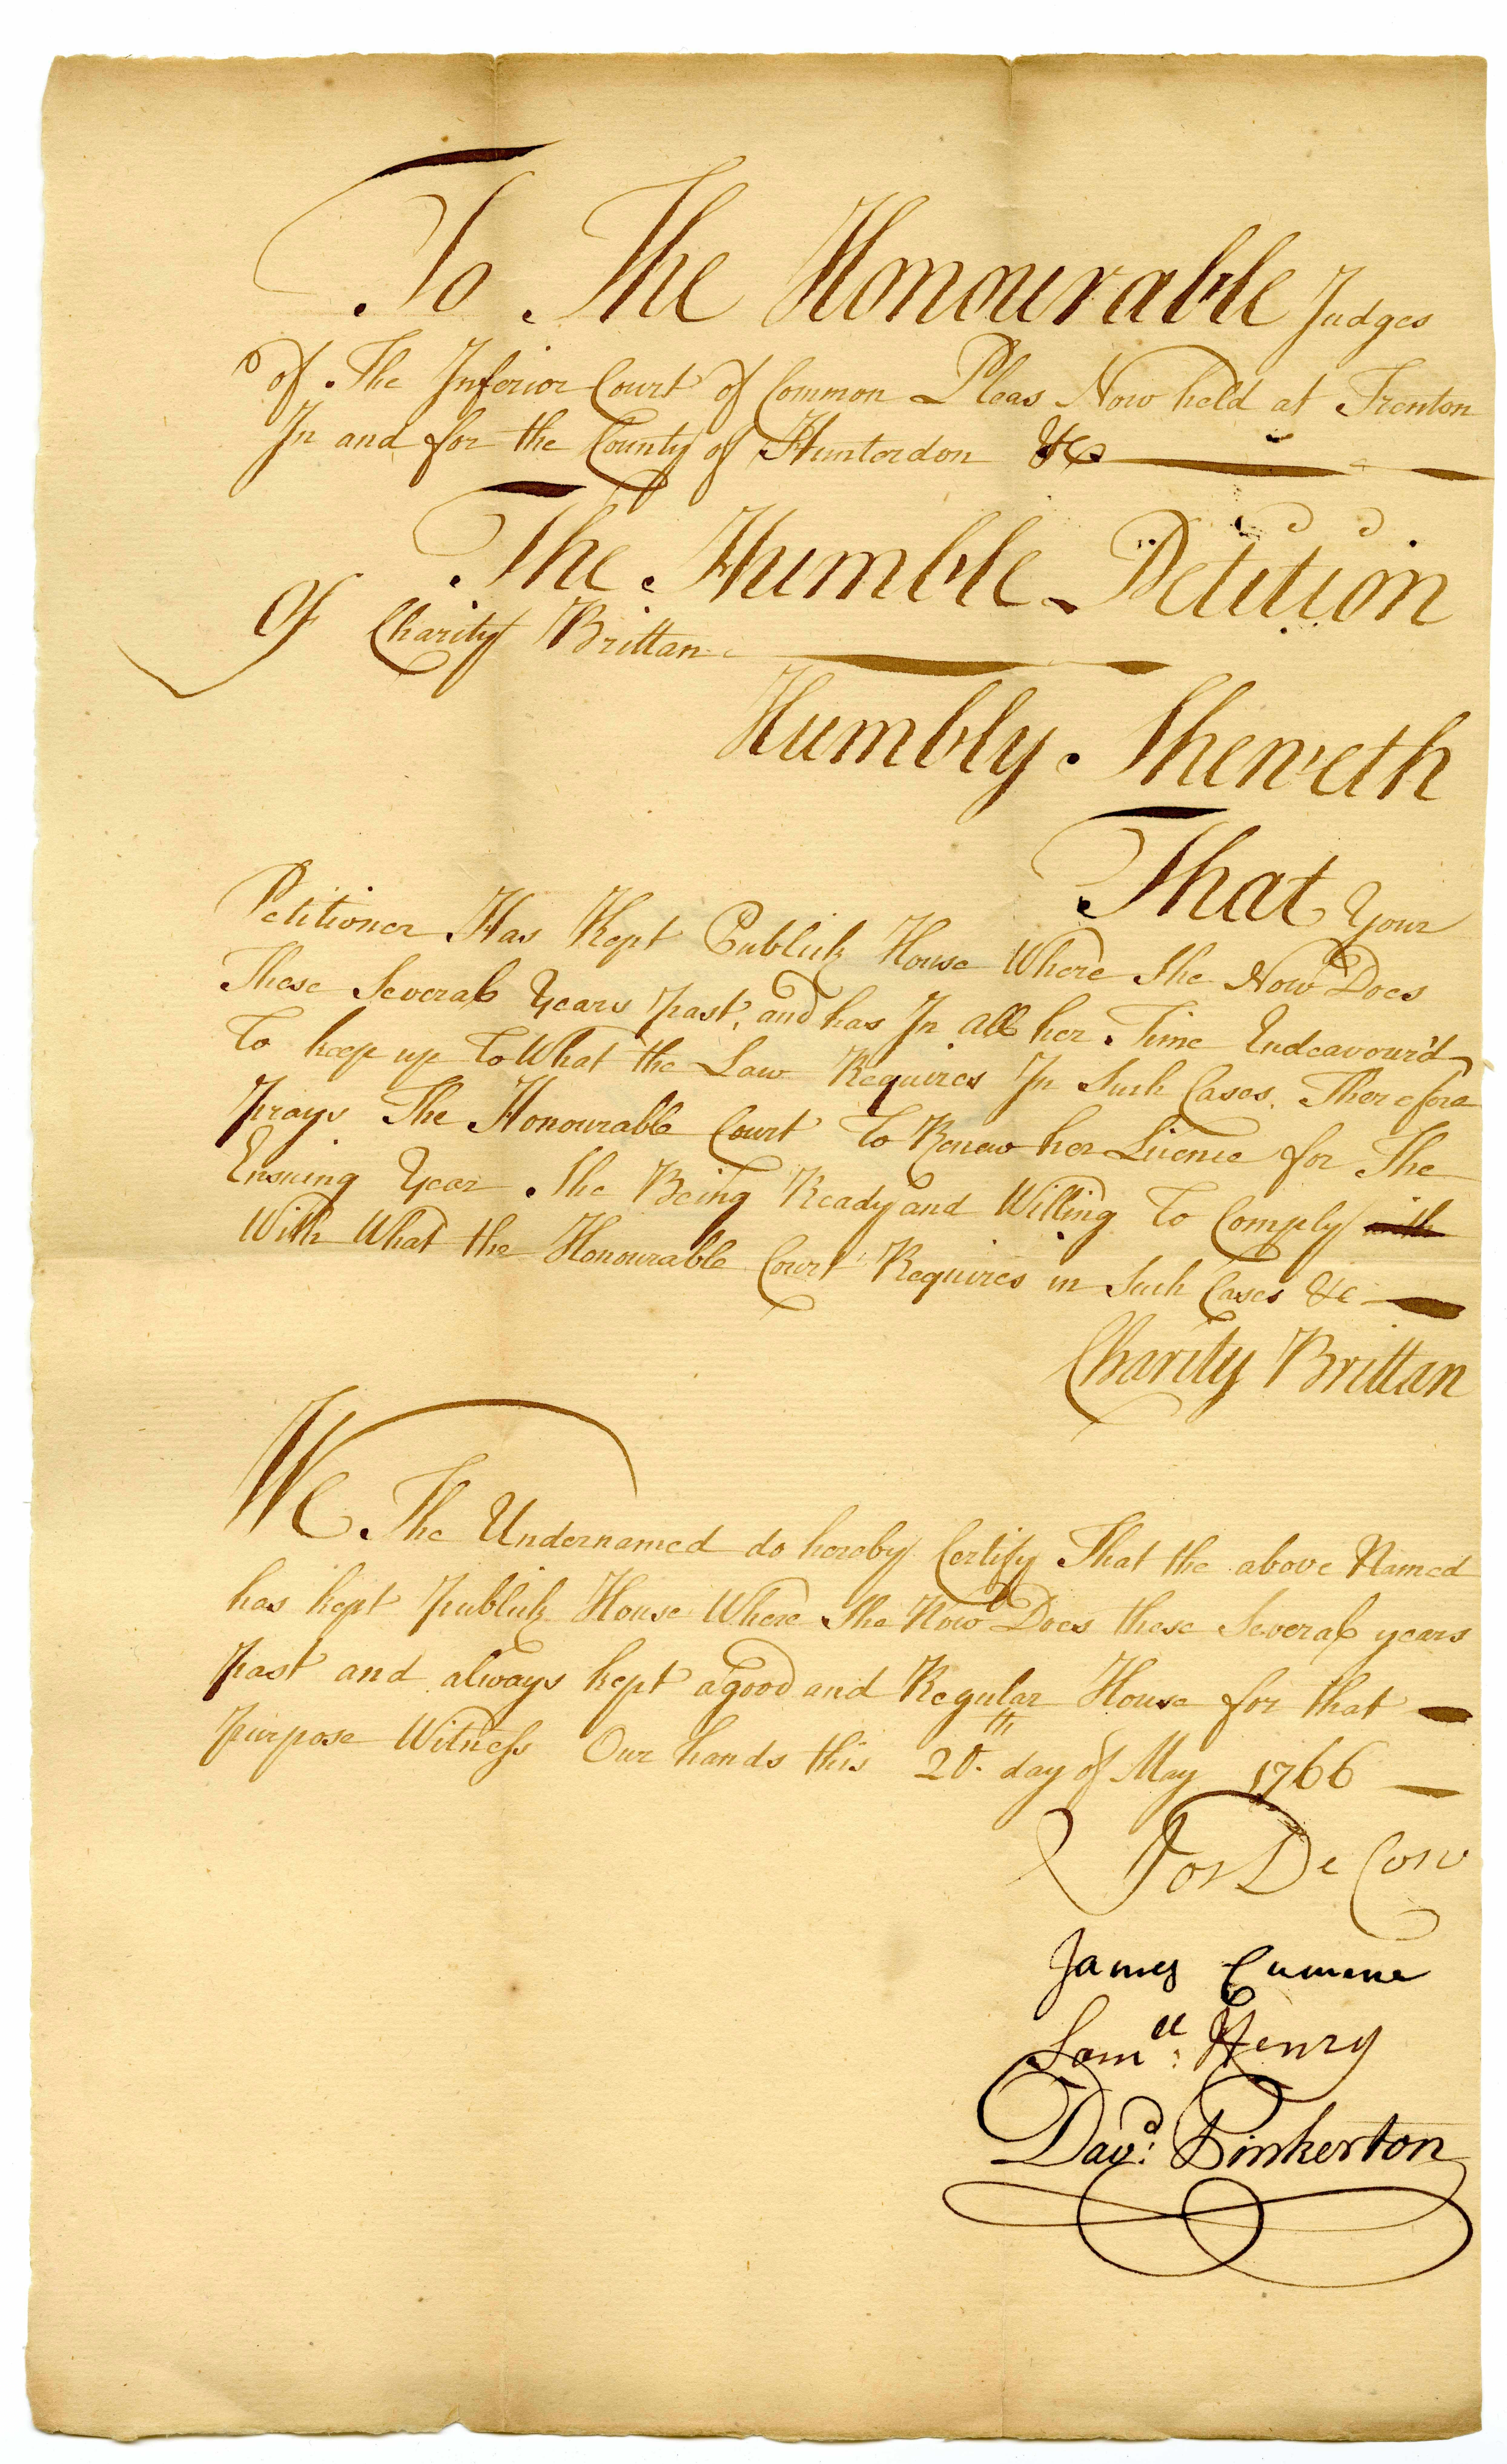 To The Honourable Judges
of The Inferior Court of Common Pleas Now held at Trenton
In and for the County of Hunterdon &c
The Humble Petition
Of Charity Brittan
Humbly Sheweth
That Your
Petitioner Has Kept Publick House Where She Now Does
These Several Years past, and has In all her Time Endeavour'd
To keep up To What the Law Requires In Such Cases. Therefore
prays The Honourable Court To Renew her Licence for The
Ensuing Year She Being Ready and Willing To Comply with
With What the Honourable Court Requires in Such Cases &c
Charity Brittan
We The Undernamed do hereby Certify That the above Named
has kept publick House Where She Now Does these Several years
past and always kept a good and Regular House for that
purpose Witness Our hands this 20th day of May 1766
Jos De Cow
James Cumine
Samll: Henry
Davd: Pinkerton